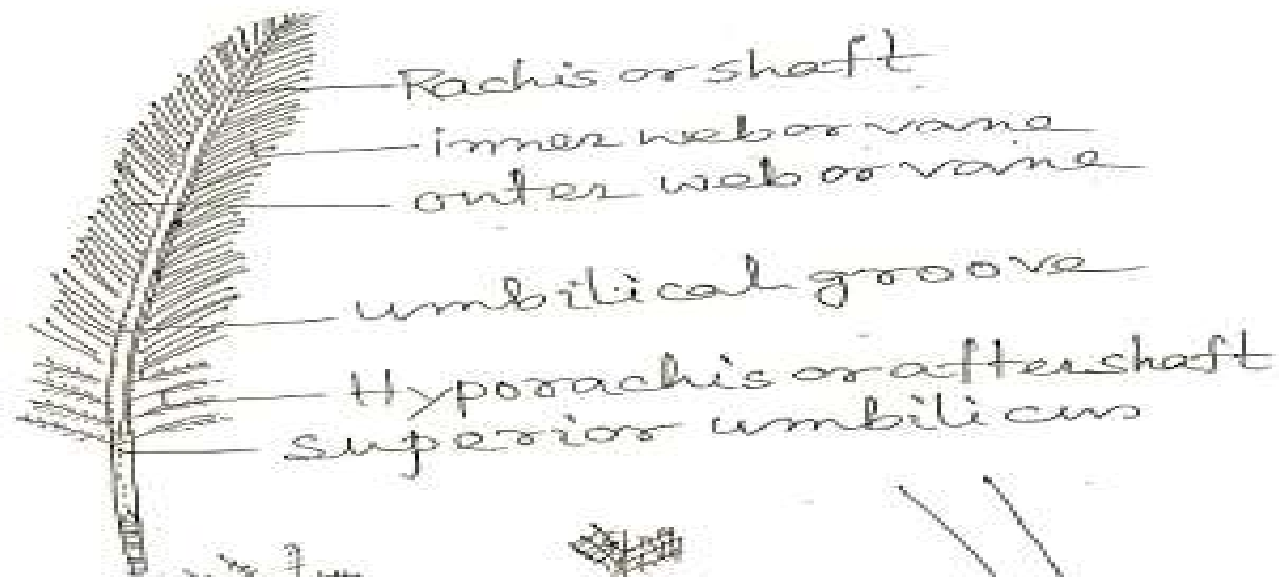 Rachis or shaft
inner web or vane
outer web or vane
umbilical groove
Hyporachis or aftershaft
superior umbilicus